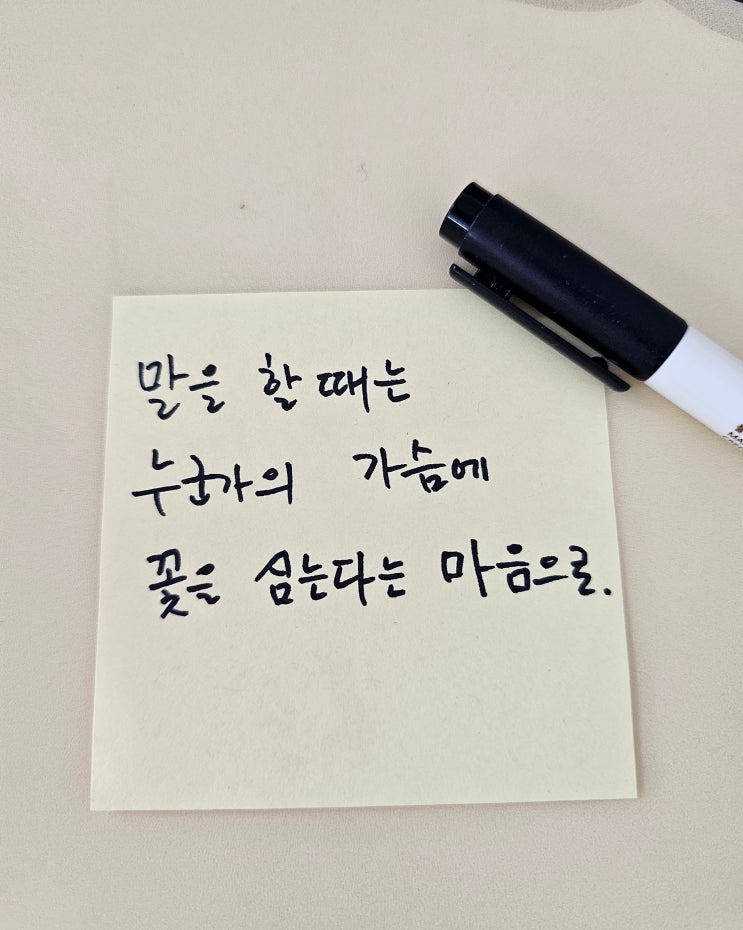 말을 할 때는
누군가의 가슴에
꽃을 심는다는 마음으로.
MA